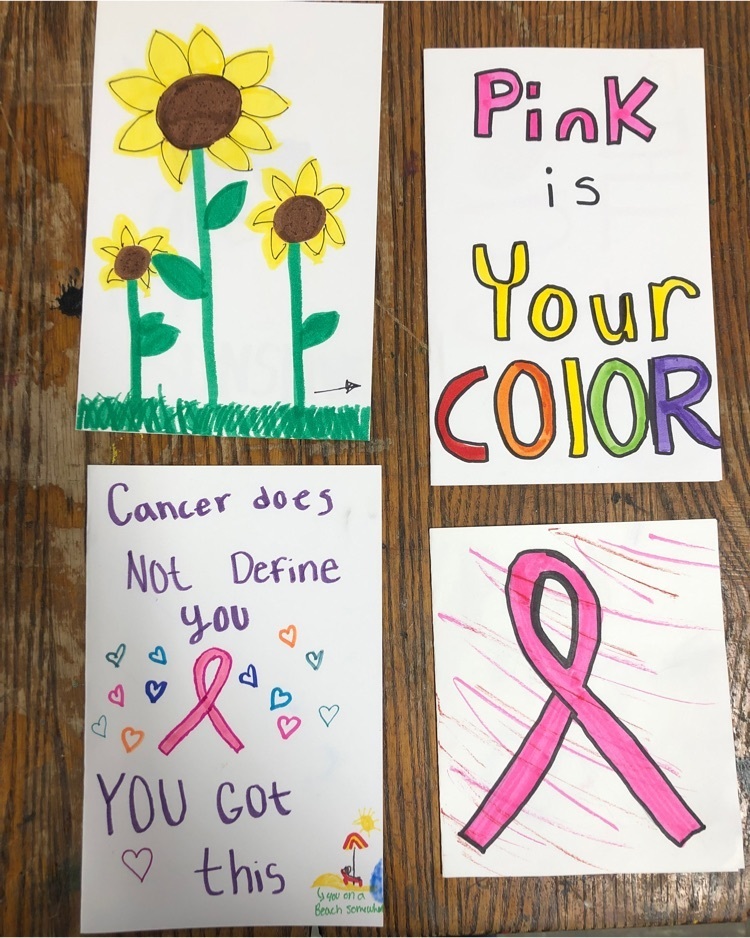 Pink
is
Your
COlOR
Cancer does
Not Define
you
YOU Got
this
you on a
Beach somewhere